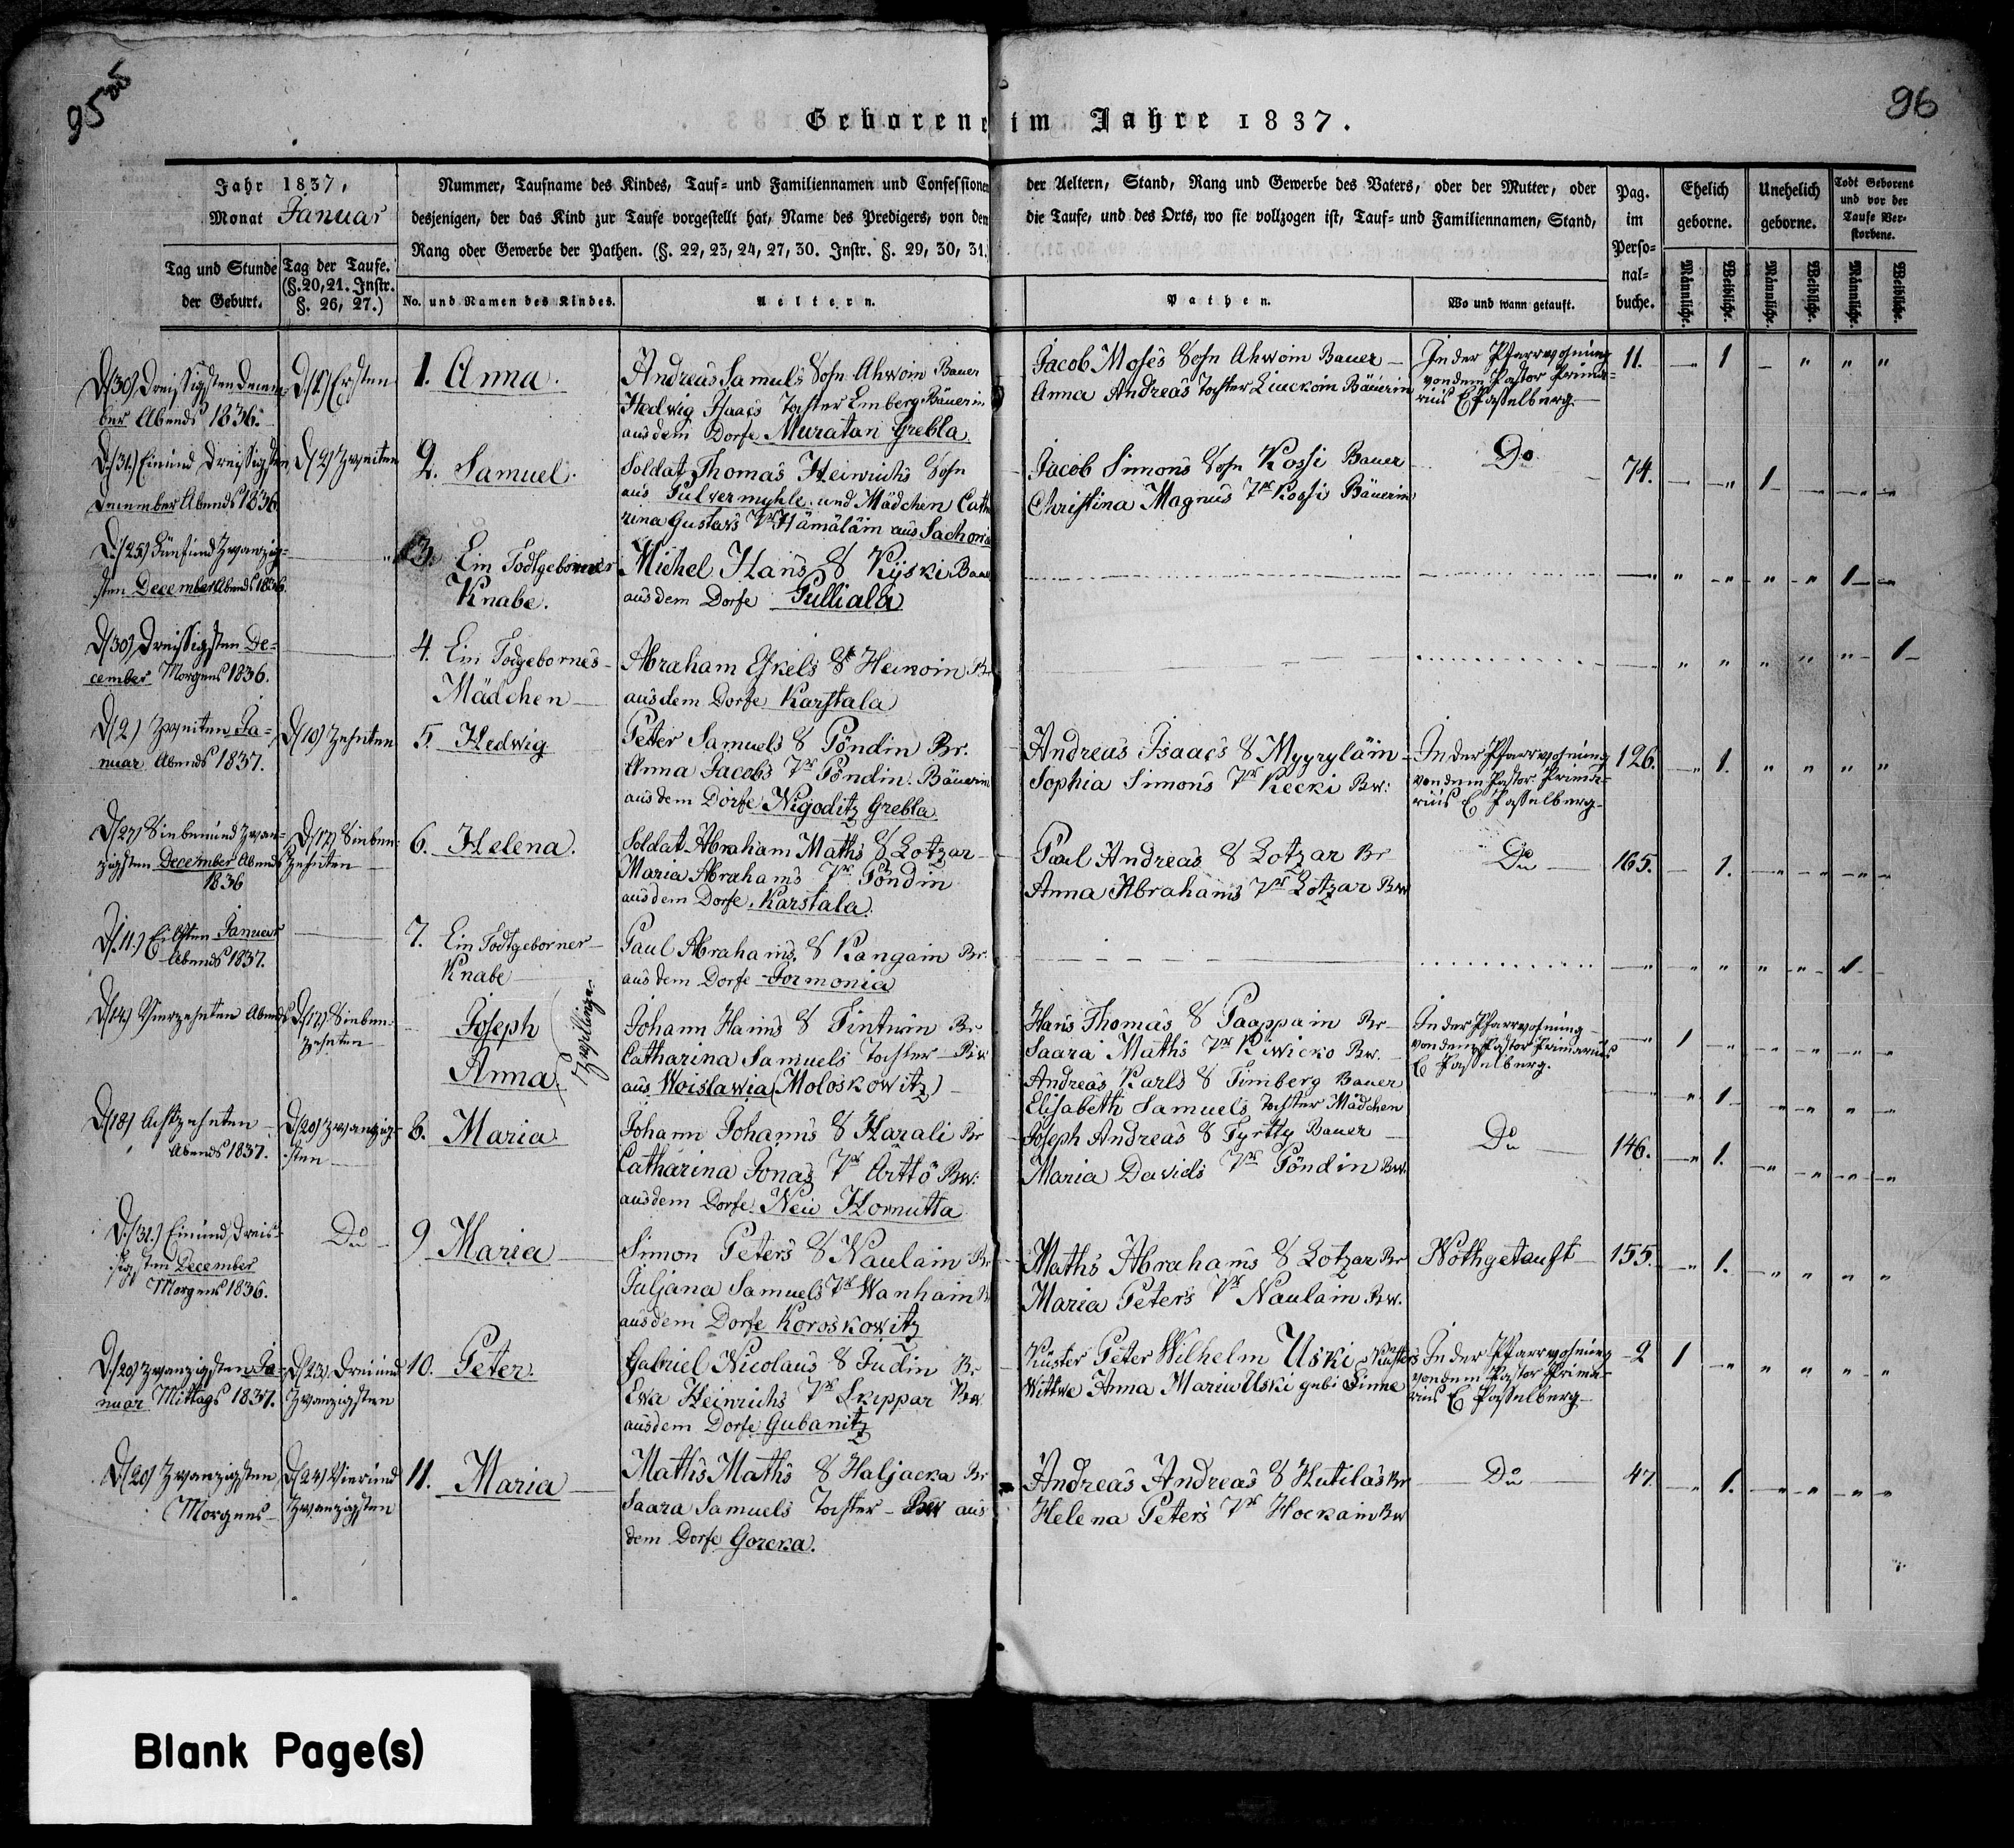 95
96
Geborene im Jahre 1837.
Jahr 1837,
Monat Januar
Tag und Stunde
der Geburt.
Tag der Taufe.
(§. 20, 21. Instr.
§. 26, 27.)
Nummer, Taufname des Kindes, Tauf= und Familiennamen und Confessionen
desjenigen, der das Kind zur Taufe vorgestellt hat, Name des Predigers, von dem
Rang oder Gewerbe der Pathen. (§. 22, 23, 24, 27, 30. Instr. §. 29, 30, 31.
No. und Namen des Kindes.
Aeltern.
der Aeltern, Stand, Rang und Gewerbe des Vaters, oder der Mutter, oder
die Taufe, und des Orts, wo sie vollzogen ist, Tauf= und Familiennamen, Stand,
Pathen.
Wo und wann getauft.
Pag.
im
Perso=
nal=
buche.
Ehelich
geborne.
Unehelich
geborne.
Todt Geborene
und vor der
Taufe Ver=
storbene.
Männliche.
Weibliche.
Männliche.
Weibliche.
Männliche.
Weibliche.
D. (30) Dreissigsten Decem=
ber Abends 1836.
D. (1) Ersten
1. Anna.
Andreas Samuls Sohn Ahwoin Bauer
Hedwig Isaacs Tochter Emberg Bäuerin
aus dem Dorfe Muratan Grebla.
Jacob Moses Sohn Ahwoin Bauer
Anna Andreas Tochter Liuckoin Bäuerin
In der Pfarrwohnung
von dem Pastor Prima=
rius E Passelberg
11. 1
D. (31.) Einund Dreissigsten
December Abends 1836
D. (2) Zweiten
2. Samuel.
Soldat Thomas Heinrichs Sohn
aus Pulvermyhle und Mädchen Catha
rina Gustavs Tr Hämäläin aus Sachon
Jacob Simons Sohn Kossi Bauer
Christina Magnus Tr Kossi Bäuerin
Do
74. 1
D. (25) Fünfund Zwanzig=
sten December Abends 1836.
3. Ein Todtgeborner
Knabe.
Michel Hans S Kyski Bauer
aus dem Dorfe Pulliala
1
D. (30) Dreissigsten De=
cember Morgens 1836.
4. Ein Todgebornes
Mädchen
Abraham Eskels S Heikoin Br
aus dem Dorfe Karstala
1
D. (2) Zweiten Ja=
nuar Abends 1837.
D. (10) Zehnten
5. Hedwig
Petter Samuels S Pöndin Br.
Anna Jacobs Tr Pöndin Bäuerin
aus dem Dorfe Nigoditz Grebla.
Andreas Isaacs S Myyryläin
Sophia Simons Tr Kecki Bw.
In der Pfarrwohnung
von dem Pastor Prima=
rius E Passelberg
126. 1.
D. (27) Siebenund Zwan=
zigsten December Abends
1836
D. (17) Sieben=
zehnten
6. Helena.
Soldat Abraham Maths S Lotzar
Maria Abrahams Tr Pöndin
aus dem Dorfe Karstala.
Paul Andreas S Lotzar Br
Anna Abrahams Tr Lotzar Bw
Do
165. 1.
D. (11.) Eilften Januar
Abends 1837.
7. Ein Todtgeborner
Knabe
Paul Abrahams S Kangain Br.
aus dem Dorfe Formonia
1
D. (14) Vierzehnten Abends
D. (17) Sieben=
zehnten
Joseph
Anna
Zwillinge
Johann Hanns S Tinturin Br
Catharina Samuels Tochter Bw
aus Woislawia (Moloskowitz)
Hans Thomas S Paappain Br
Saara Maths Tr Kiwicko Bw.
Andreas Karls S Timberg Bauer
Elisabeth Samuels Tochter Mädchen
In der Pfarrwohnung
von dem Pastor Primarius
E Passelberg.
1
1
D. (18) Achtzehnten
Abends 1837.
D. (20) Zwanzig=
sten
8. Maria
Johann Johanns S Harali Br
Catharina Jonas Tr Arttö Bw.
aus dem Dorfe Neu Kornutta
Joseph Andreas S Tyrtty Bauer
Maria Davids Tr Pöndin Bw.
Do
146. 1.
D. (31.) Einund Dreis=
sigsten December
Morgens 1836.
Do
9 Maria
Simon Peters S Naulain Br
Juljana Samuels Tr Wanhain
aus dem Dorfe Koroskowitz
Maths Abrahams S Lotzar Br
Maria Peters Tr Naulain Bw.
Nothgetauft
155. 1.
D. (20) Zwanzigsten Ja=
nuar Mittags 1837.
D. (23) Dreiund
Zwanzigsten
10. Peter.
Gabriel Nicolaus S Judin Br
Ewa Heinrichs Tr Skippar Bw.
aus dem Dorfe Gubanitz
Küster Peter Wilhelm Uski, Küsters
Wittwe Anna Maria Uski geb: Sinne
In der Pfarrwohnung
von dem Pastor Prima=
rius E Passelberg
2 1
D. (20) Zwanzigsten
Morgens
D. (24) Vierund
Zwanzigsten
11. Maria
Maths Maths S Haljacka Br
Saara Samuels Tochter Bw aus
dem Dorfe Gorcka.
Andreas Andreas S Hutilas Br
Helena Peters Tr Hockain Bw
Do
47 1.
Blank Page(s)